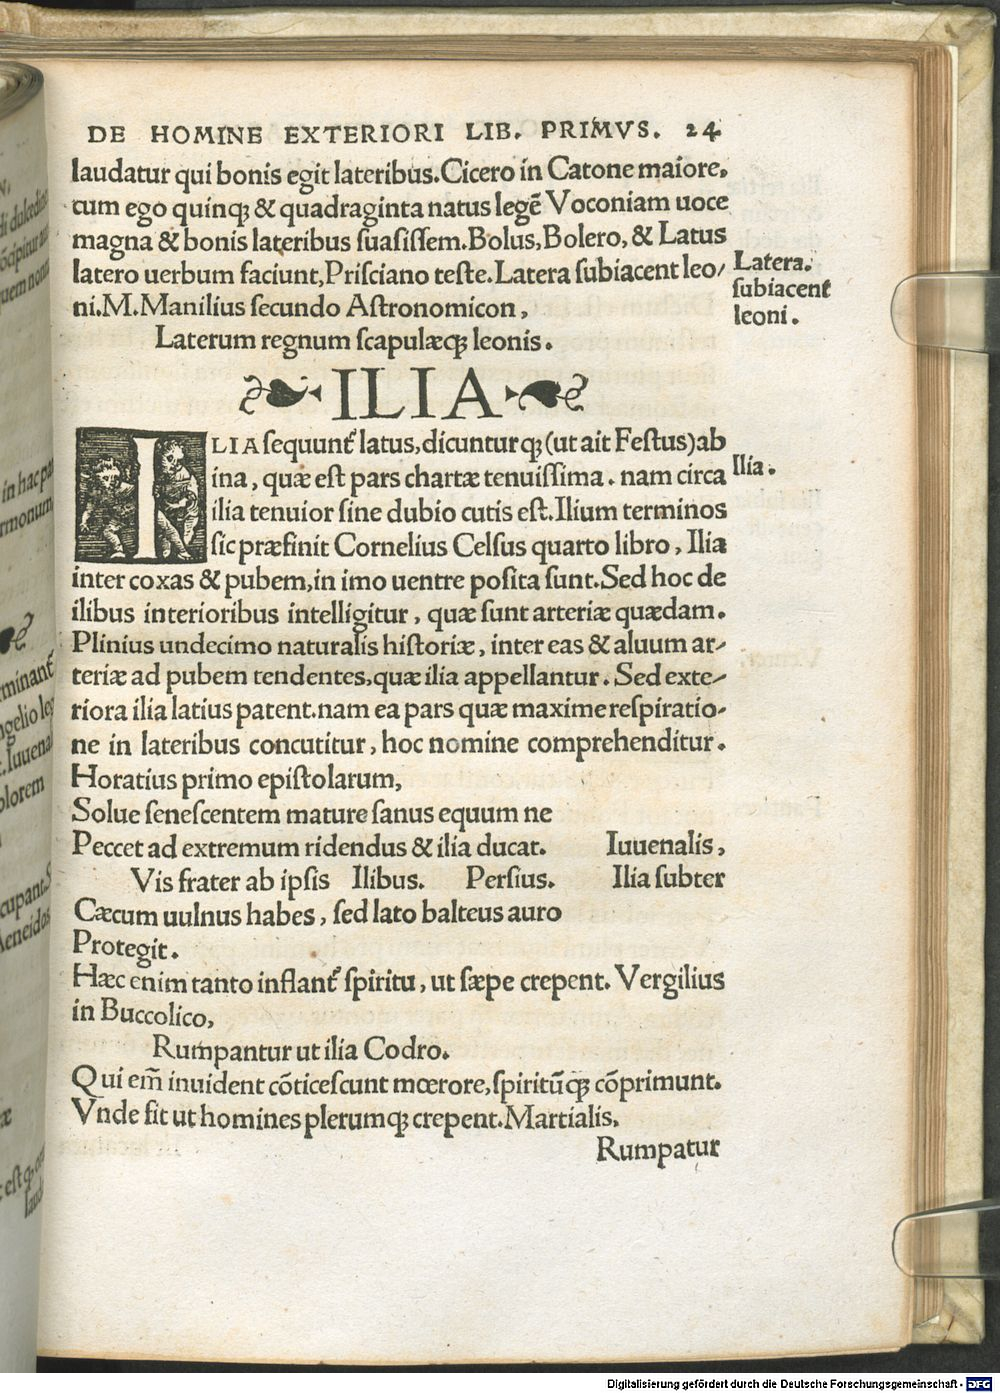 DE HOMINE EXTERIORI LIB. PRIMVS. 24
laudatur qui bonis egit lateribus.Cicero in Catone maiore,
cum ego quinqꝫ & quadraginta natus legē Voconiam uoce
magna & bonis lateribus ſuaſiſſem.Bolus,Bolero, & Latus
latero uerbum faciunt,Priſciano teſte.Latera ſubiacent leo/
ni.M.Manilius ſecundo Aſtronomicon,
Latera.
ſubiacent
leoni.
Laterum regnum ſcapulæqꝫ leonis.
ILIA
ILIA ſequunt᷑ latus,dicuntur qꝫ (ut ait Feſtus) ab
ina, quæ eſt pars chartæ tenuiſſima. nam circa
Ilia.
ilia tenuior ſine dubio cutis eſt.Ilium terminos
ſic præfinit Cornelius Celſus quarto libro, Ilia
inter coxas & pubem,in imo uentre poſita ſunt.Sed hoc de
ilibus interioribus intelligitur, quæ ſunt arteriæ quædam.
Plinius undecimo naturalis hiſtoriæ, inter eas & aluum ar-
teriæ ad pubem tendentes,quæ ilia appellantur. Sed exte-
riora ilia latius patent.nam ea pars quæ maxime reſpiratio-
ne in lateribus concutitur, hoc nomine comprehenditur.
Horatius primo epiſtolarum,
Solue ſeneſcentem mature ſanus equum ne
Peccet ad extremum ridendus & ilia ducat. Iuuenalis,
Vis frater ab ipſis Ilibus. Perſius. Ilia ſubter
Cæcum uulnus habes, ſed lato balteus auro
Protegit.
Hæc enim tanto inflant᷑ ſpiritu, ut ſæpe crepent. Vergilius
in Buccolico,
Rumpantur ut ilia Codro.
Qui em̃ inuident cōticeſcunt mœrore,ſpiritūqꝫ cōprimunt.
Vnde fit ut homines plerumqꝫ crepent.Martialis,
Rumpatur
Digitalisierung gefördert durch die Deutsche Forschungsgemeinschaft - DFG